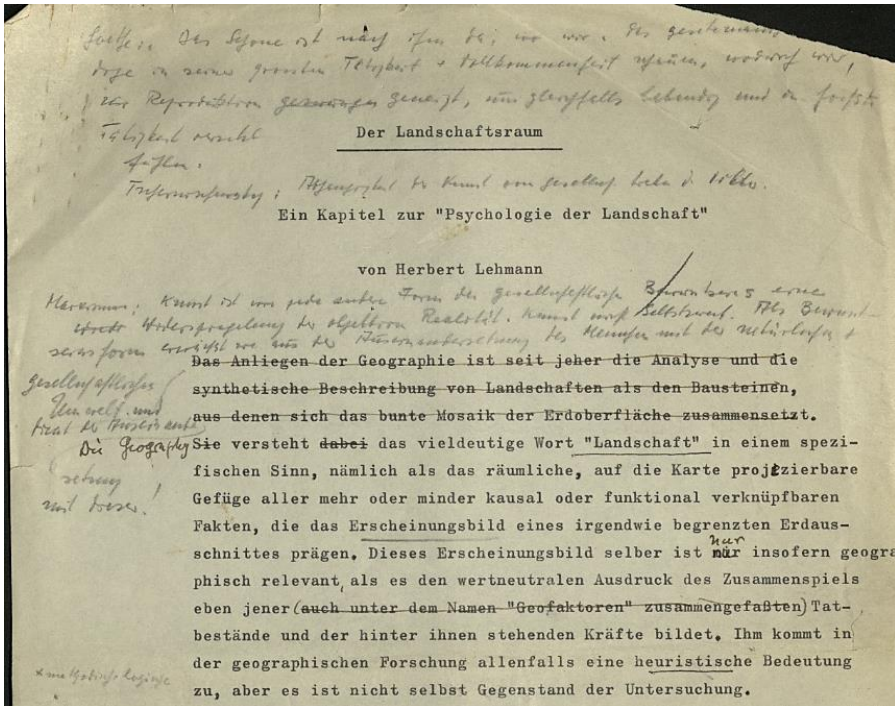 Goethe: Das Schöne ist nach ihm da, wo wir das gesetzmäss
in seiner grössten Tätigkeit + Vollkommenheit schauen, wodurch wir,
zur Reproduktion gezwungen geneigt, uns gleichfalls lebendig und in höchste
Tätigkeit versetzt
fühlen.
Der Landschaftsraum
Tschernyschewsky: Abhängigkeit der Kunst vom gesellsch. Leben
Ein Kapitel zur "Psychologie der Landschaft"
von Herbert Lehmann
Marxismus: Kunst ist wie jede andere Form des gesellschaftlichen Bewusstseins eine
Widerspiegelung der objektiven Realität. Kunst nicht Selbstzweck. Als Bewusst-
seinsform erwächst sie aus der Auseinandersetzung des Menschen mit der natürlichen +
gesellschaftlichen
Umwelt und
dient der Auseinander
setzung
mit dieser!
Das Anliegen der Geographie ist seit jeher die Analyse und die
synthetische Beschreibung von Landschaften als den Bausteinen,
aus denen sich das bunte Mosaik der Erdoberfläche zusammensetzt.
Die Geography Sie versteht dabei das vieldeutige Wort "Landschaft" in einem spezi-
fischen Sinn, nämlich als das räumliche, auf die Karte projizierbare
Gefüge aller mehr oder minder kausal oder funktional verknüpfbaren
Fakten, die das Erscheinungsbild eines irgendwie begrenzten Erdaus-
schnittes prägen. Dieses Erscheinungsbild selber ist nur insofern geogra
phisch relevant, als es den wertneutralen Ausdruck des Zusammenspiels
eben jener (auch unter dem Namen "Geofaktoren" zusammengefaßten) Tat-
bestände und der hinter ihnen stehenden Kräfte bildet. Ihm kommt in
der geographischen Forschung allenfalls eine heuristische Bedeutung
+ methodisch-logische
zu, aber es ist nicht selbst Gegenstand der Untersuchung.